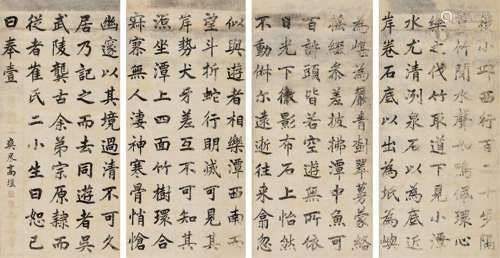 從小邱西行百二十步隔
篁竹聞水聲如鳴佩環心
樂之伐竹取道下見小潭
水尤清冽泉石以為底近
岸卷石底以出為坻為嶼
為嵁為巖青樹翠蔓蒙絡
搖綴參差披拂潭中魚可
百許頭皆若空遊無所依
日光下徹影布石上怡然
不動俶尔遠逝往來翕忽
似與遊者相樂潭西南而
望斗折蛇行明滅可見其
岸勢犬牙差互不可知其
源坐潭上四面竹樹環合
寂寥無人淒神寒骨悄愴
幽邃以其境過清不可久
居乃記之而去同遊者吳
武陵龔古余弟宗原隸而
從者崔氏二小生曰恕己
曰奉壹
爽泉高塏